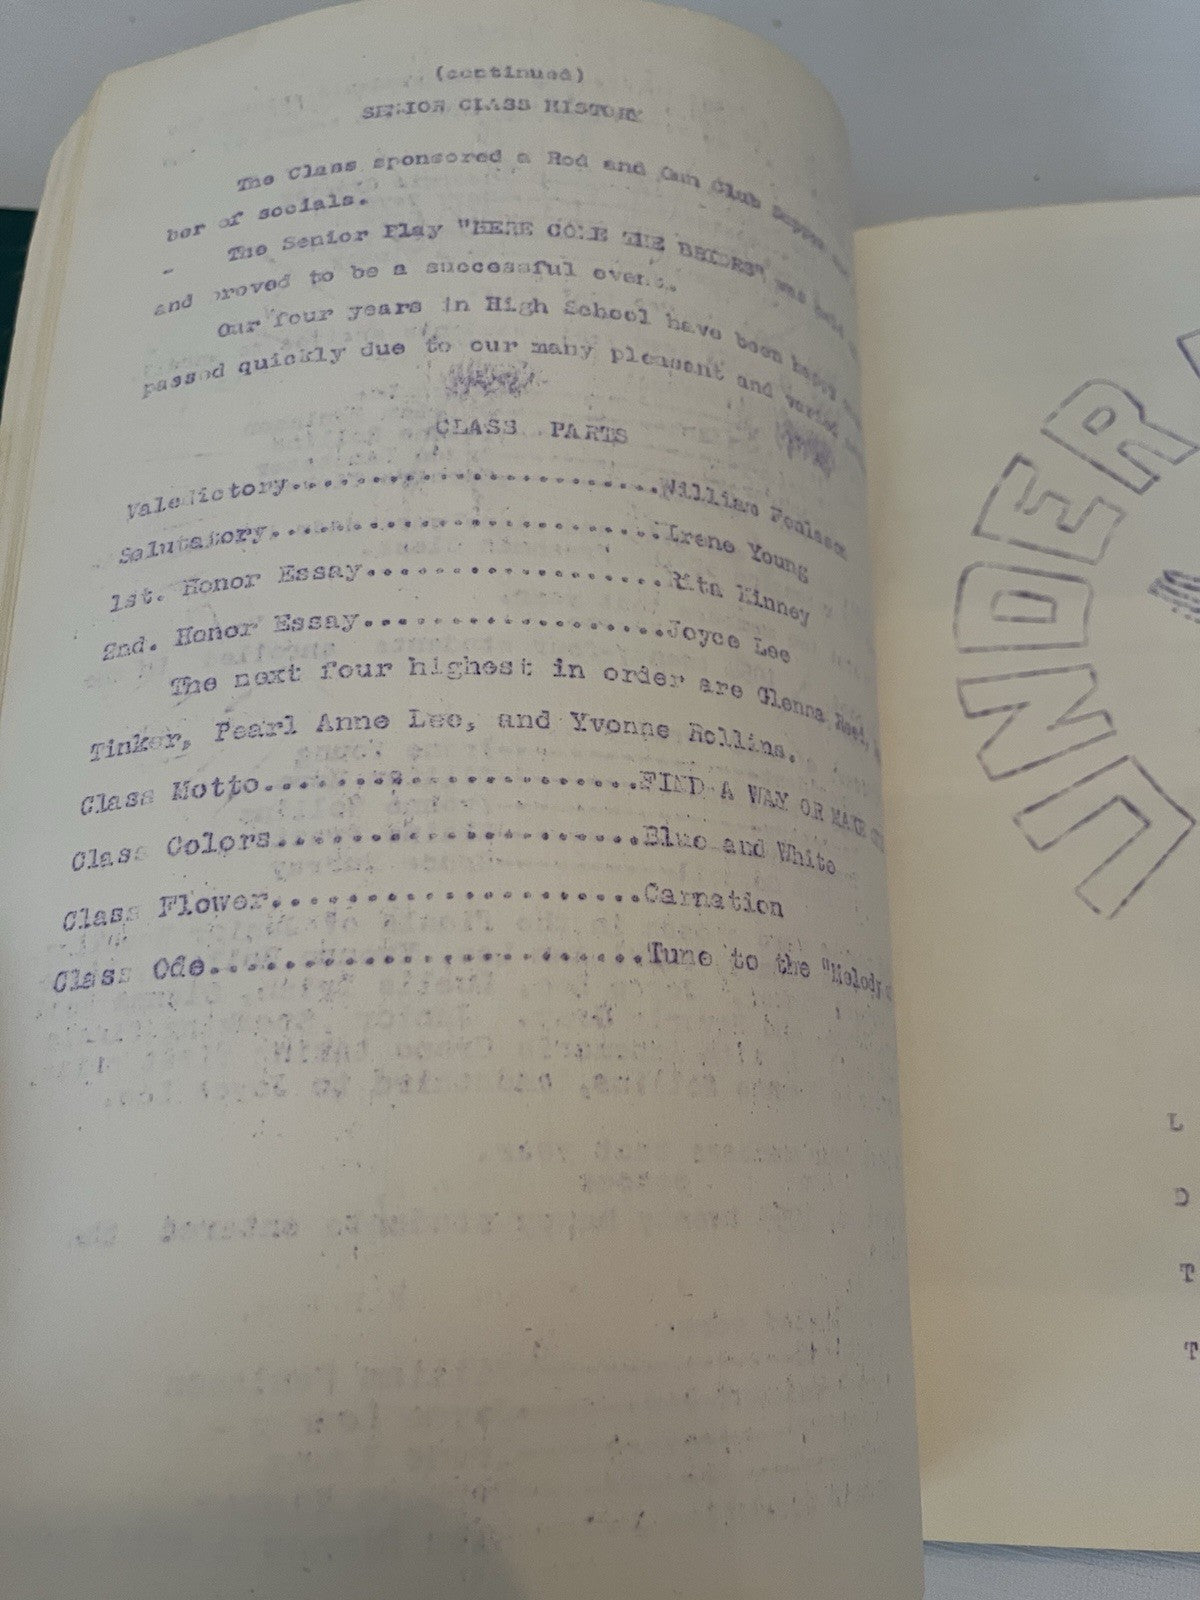 (continued)
SENIOR CLASS HISTORY
The Class sponsored a Rod and Gun Club Supper
ber of socials.
- The Senior Play "HERE COME THE BRIDES" was held
and proved to be a successful event.
Our four years in High School have been happy
passed quickly due to our many pleasant and varied
CLASS PARTS
Valedictory........................William
Salutatory.......................Irene Young
1st. Honor Essay...................Rita Kinney
2nd. Honor Essay...................Joyce Lee
The next four highest in order are Glenna Reed,
Tinker, Pearl Anne Lee, and Yvonne Rollins.
Class Motto.......................FIND A WAY OR MAKE
Class Colors......................Blue and White
Class Flower......................Carnation
Class Ode.........................Tune to the "Melody
UNDER